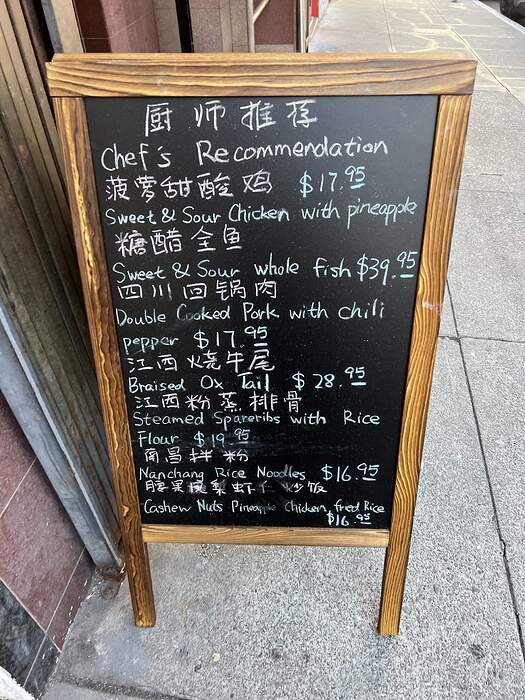 厨师推荐
Chef's Recommendation
菠萝甜酸鸡 $17.95
Sweet & Sour Chicken with pineapple
糖醋全鱼
Sweet & Sour whole fish $39.95
四川回锅肉
Double Cooked Pork with chili
pepper $17.95
江西烧牛尾
Braised Ox Tail $28.95
江西粉蒸排骨
Steamed Spareribs with Rice
Flour $19.95
南昌拌粉
Nanchang Rice Noodles $16.95
腰果凤梨虾仁炒饭
Cashew Nuts Pineapple Chicken fred Rice
$16.95